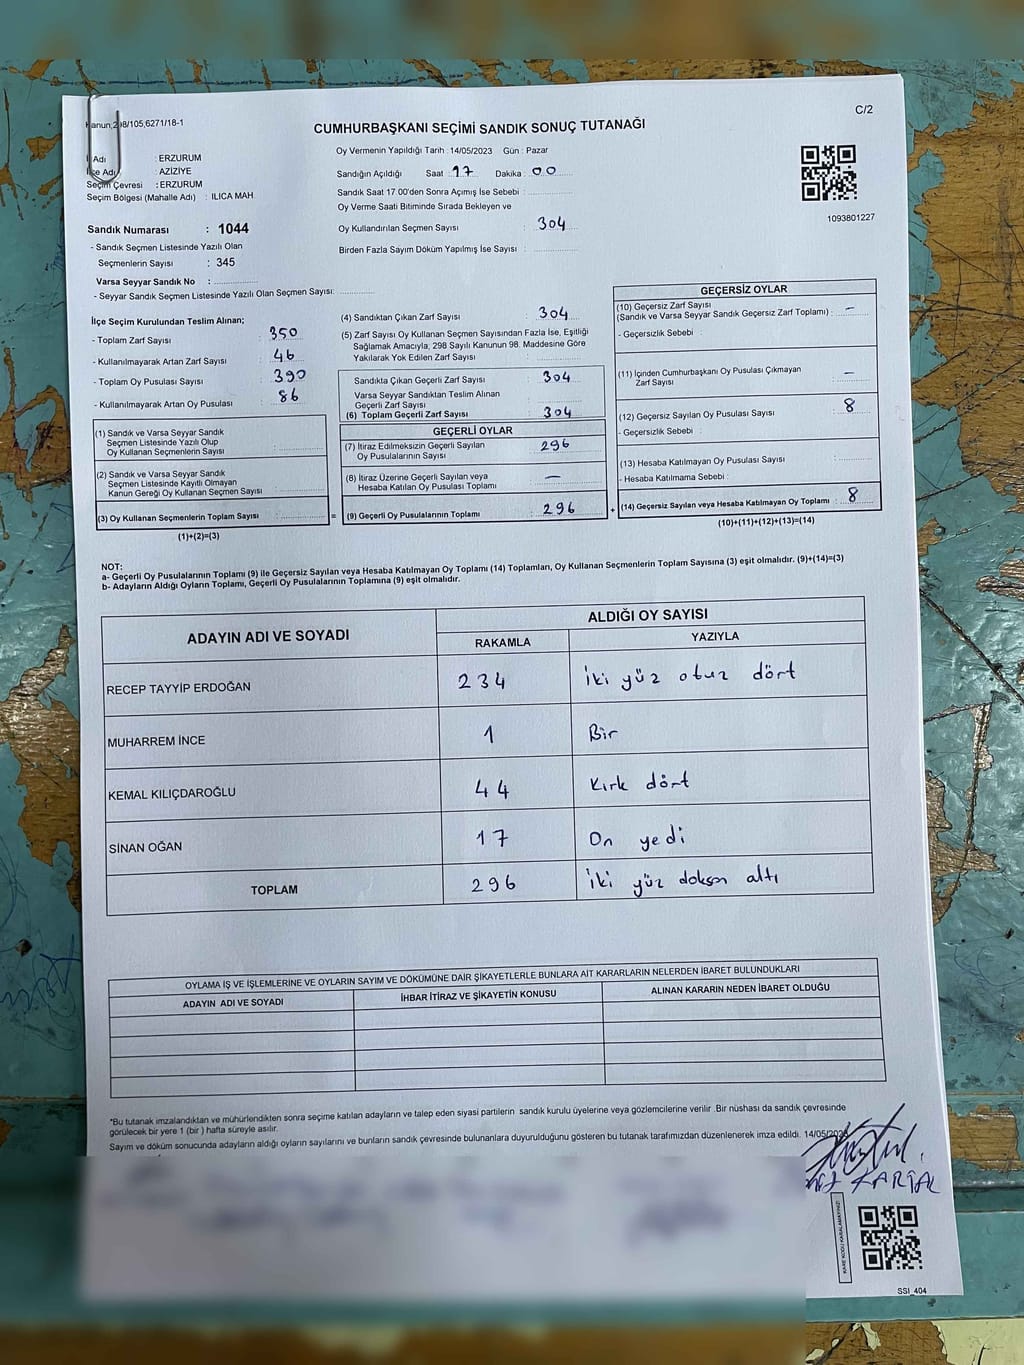 C/2
Kanun,298/105,6271/18-1
CUMHURBAŞKANI SEÇİMİ SANDIK SONUÇ TUTANAĞI
Adı : ERZURUM
İlçe Adı : AZİZİYE
Seçim Çevresi : ERZURUM
Seçim Bölgesi (Mahalle Adı) : ILICA MAH.
Oy Vermenin Yapıldığı Tarih : 14/05/2023 Gün : Pazar
Sandığın Açıldığı Saat : 17 Dakika : 00
Sandık Saat 17.00'den Sonra Açımış İse Sebebi :
Oy Verme Saati Bitiminde Sırada Bekleyen ve
Oy Kullandırılan Seçmen Sayısı : 304
Birden Fazla Sayım Döküm Yapılmış İse Sayısı :
1093801227
Sandık Numarası : 1044
- Sandık Seçmen Listesinde Yazılı Olan
Seçmenlerin Sayısı : 345
Varsa Seyyar Sandık No :
- Seyyar Sandık Seçmen Listesinde Yazılı Olan Seçmen Sayısı:
İlçe Seçim Kurulundan Teslim Alınan;
- Toplam Zarf Sayısı : 350
- Kullanılmayarak Artan Zarf Sayısı : 46
- Toplam Oy Pusulası Sayısı : 390
- Kullanılmayarak Artan Oy Pusulası : 86
(1) Sandık ve Varsa Seyyar Sandık
Seçmen Listesinde Yazılı Olup
Oy Kullanan Seçmenlerin Sayısı :
(2) Sandık ve Varsa Seyyar Sandık
Seçmen Listesinde Kayıtlı Olmayan
Kanun Gereği Oy Kullanan Seçmen Sayısı :
(3) Oy Kullanan Seçmenlerin Toplam Sayısı : =
(1)+(2)=(3)
(4) Sandıktan Çıkan Zarf Sayısı : 304
(5) Zarf Sayısı Oy Kullanan Seçmen Sayısından Fazla İse, Eşitliği
Sağlamak Amacıyla, 298 Sayılı Kanunun 98. Maddesine Göre
Yakılarak Yok Edilen Zarf Sayısı :
Sandıkta Çıkan Geçerli Zarf Sayısı : 304
Varsa Seyyar Sandıktan Teslim Alınan
Geçerli Zarf Sayısı :
(6) Toplam Geçerli Zarf Sayısı : 304
GEÇERLİ OYLAR
(7) İtiraz Edilmeksizin Geçerli Sayılan
Oy Pusulalarının Sayısı : 296
(8) İtiraz Üzerine Geçerli Sayılan veya
Hesaba Katılan Oy Pusulası Toplamı : —
(9) Geçerli Oy Pusulalarının Toplamı : 296 +
GEÇERSİZ OYLAR
(10) Geçersiz Zarf Sayısı
(Sandık ve Varsa Seyyar Sandık Geçersiz Zarf Toplamı) : —
- Geçersizlik Sebebi :
(11) İçinden Cumhurbaşkanı Oy Pusulası Çıkmayan
Zarf Sayısı : —
(12) Geçersiz Sayılan Oy Pusulası Sayısı : 8
- Geçersizlik Sebebi :
(13) Hesaba Katılmayan Oy Pusulası Sayısı :
- Hesaba Katılmama Sebebi :
(14) Geçersiz Sayılan veya Hesaba Katılmayan Oy Toplamı : 8
(10)+(11)+(12)+(13)=(14)
NOT:
a- Geçerli Oy Pusulalarının Toplamı (9) ile Geçersiz Sayılan veya Hesaba Katılmayan Oy Toplamı (14) Toplamları, Oy Kullanan Seçmenlerin Toplam Sayısına (3) eşit olmalıdır. (9)+(14)=(3)
b- Adayların Aldığı Oyların Toplamı, Geçerli Oy Pusulalarının Toplamına (9) eşit olmalıdır.
ADAYIN ADI VE SOYADI ALDIĞI OY SAYISI
RAKAMLA YAZIYLA
RECEP TAYYİP ERDOĞAN 234 İki yüz otuz dört
MUHARREM İNCE 1 Bir
KEMAL KILIÇDAROĞLU 44 Kırk dört
SİNAN OĞAN 17 On yedi
TOPLAM 296 İki yüz doksan altı
OYLAMA İŞ VE İŞLEMLERİNE VE OYLARIN SAYIM VE DÖKÜMÜNE DAİR ŞİKAYETLERLE BUNLARA AİT KARARLARIN NELERDEN İBARET BULUNDUKLARI
ADAYIN ADI VE SOYADI İHBAR İTİRAZ VE ŞİKAYETİN KONUSU ALINAN KARARIN NEDEN İBARET OLDUĞU
*Bu tutanak imzalandıktan ve mühürlendikten sonra seçime katılan adayların ve talep eden siyasi partilerin sandık kurulu üyelerine veya gözlemcilerine verilir .Bir nüshası da sandık çevresinde
görülecek bir yere 1 (bir ) hafta süreyle asılır.
Sayım ve döküm sonucunda adayların aldığı oyların sayılarını ve bunların sandık çevresinde bulunanlara duyurulduğunu gösteren bu tutanak tarafımızdan düzenlenerek imza edildi. 14/05/2023
KARTAL
KARE KODU KARALAMAYINIZ!
SSI_404